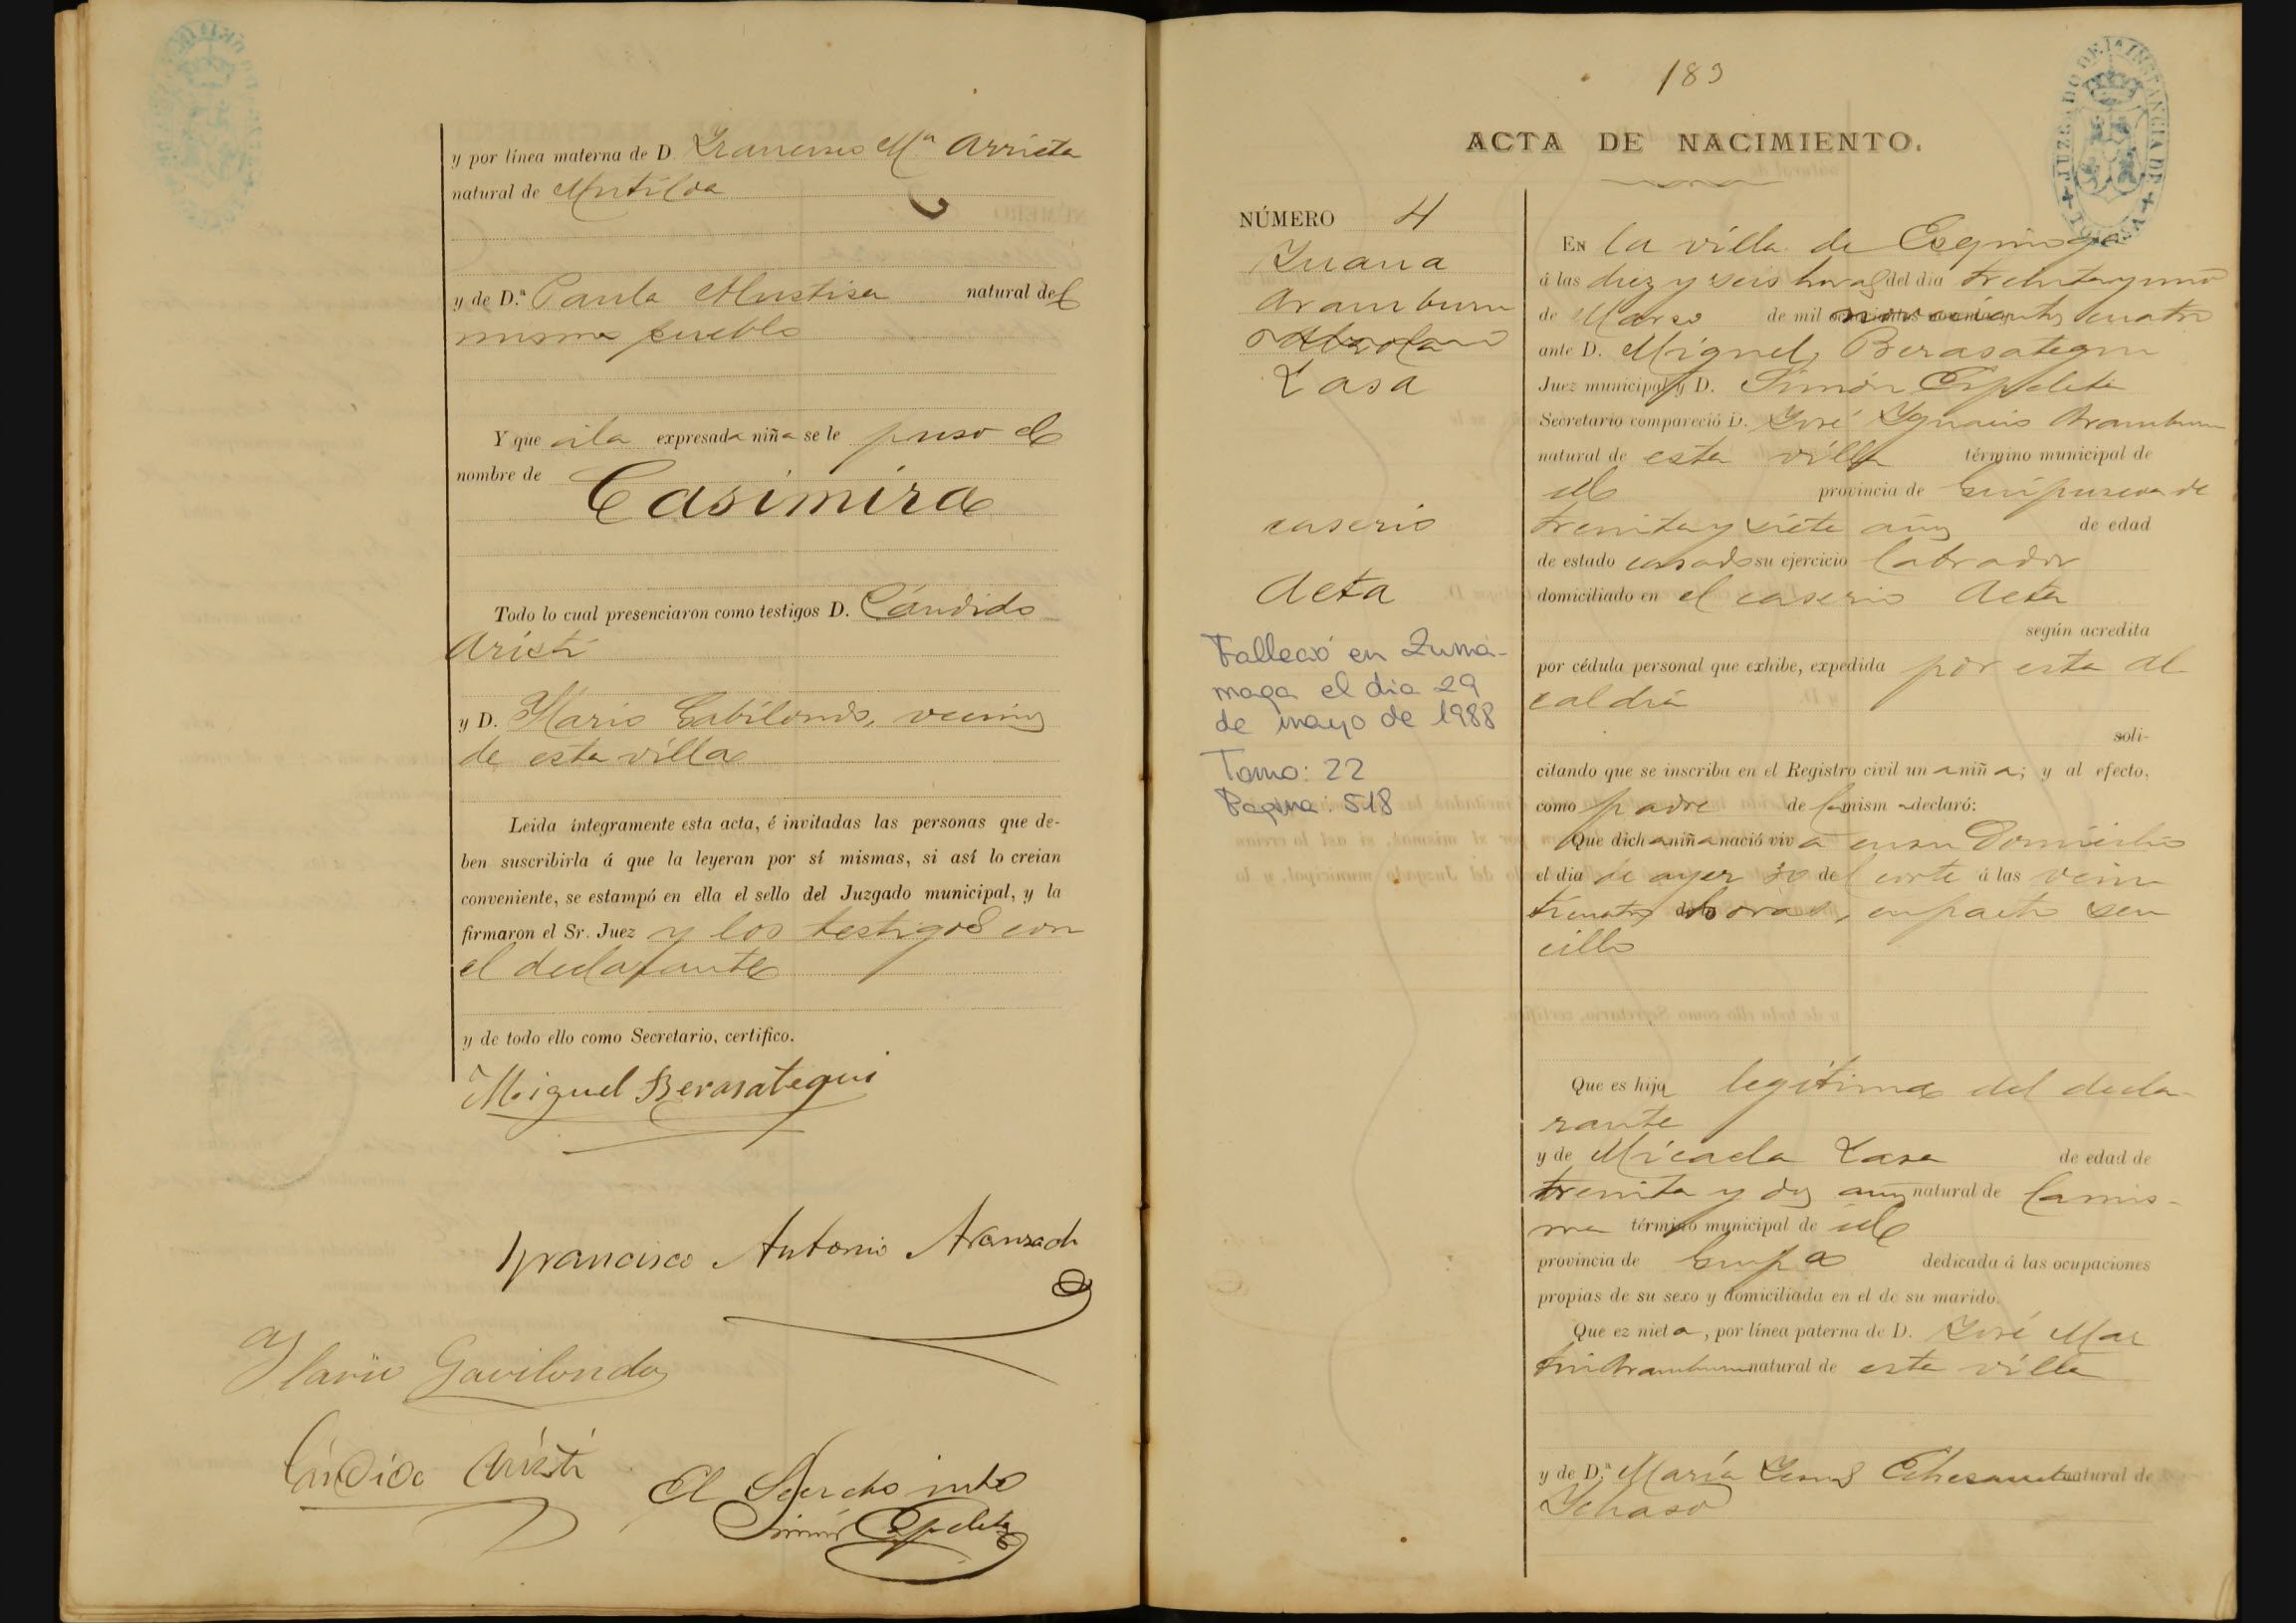 y por línea materna de D Francisco Mª Arrieta
natural de Mutiloa
y de D.ª Paula Mustisa natural del
mismo pueblo
Y que á la expresada niña se le puso el
nombre de
Casimira
Todo lo cual presenciaron como testigos D. Cándido
Aristi
y D. Ylario Gabilondo, vecinos
de esta villa
Leida íntegramente esta acta, é invitadas las personas que de-
ben suscribirla á que la leyeran por sí mismas, si así lo creian
conveniente, se estampó en ella el sello del Juzgado municipal, y la
firmaron el Sr. Juez y los testigos con
el declarante
y de todo ello como Secretario, certifico.
Miguel Berasategui
Francisco Antonio Aranzadi
Ylario Gavilondo
Cándido Aristi
El Secreto into
Simón Espeleta
189
ACTA DE NACIMIENTO.
JUZGADO DE 1ª INSTANCIA DE
NÚMERO 4
Juana
Aramburu
Lasa
caserio
Aeta
Falleció en Zumá-
rraga el dia 29
de mayo de 1988
Tomo: 22
Pagina: 518
En la villa de Ezquioga
á las diez y seis horas del dia treinta y uno
de Marzo de mil novecientos cuatro
ante D. Miguel Berasategui
Juez municipal y D. Simón Espeleta
Secretario compareció D. José Ygnacio Aramburu
natural de esta villa término municipal de
id provincia de Guipuzcoa de
treinta y siete años de edad
de estado casado su ejercicio labrador
domiciliado en el caserio Aeta
según acredita
por cédula personal que exhibe, expedida por esta Al
caldia
soli-
citando que se inscriba en el Registro civil una niña; y al efecto,
como padre de la misma declaró:
Que dicha niña nació viva en su Domicilio
el dia de ayer 30 del corte á las vein
ticuatro horas, en parto sen
cillo
Que es hija legítima del decla-
rante
y de Micaela Lasa de edad de
treinta y dos años natural de la mis-
ma término municipal de id
provincia de Guipa dedicada á las ocupaciones
propias de su sexo y domiciliada en el de su marido.
Que ez nieta, por línea paterna de D. José Mar
tin Aramburu natural de esta villa
y de D.ª María Jesus Echezarreta natural de
Ychaso